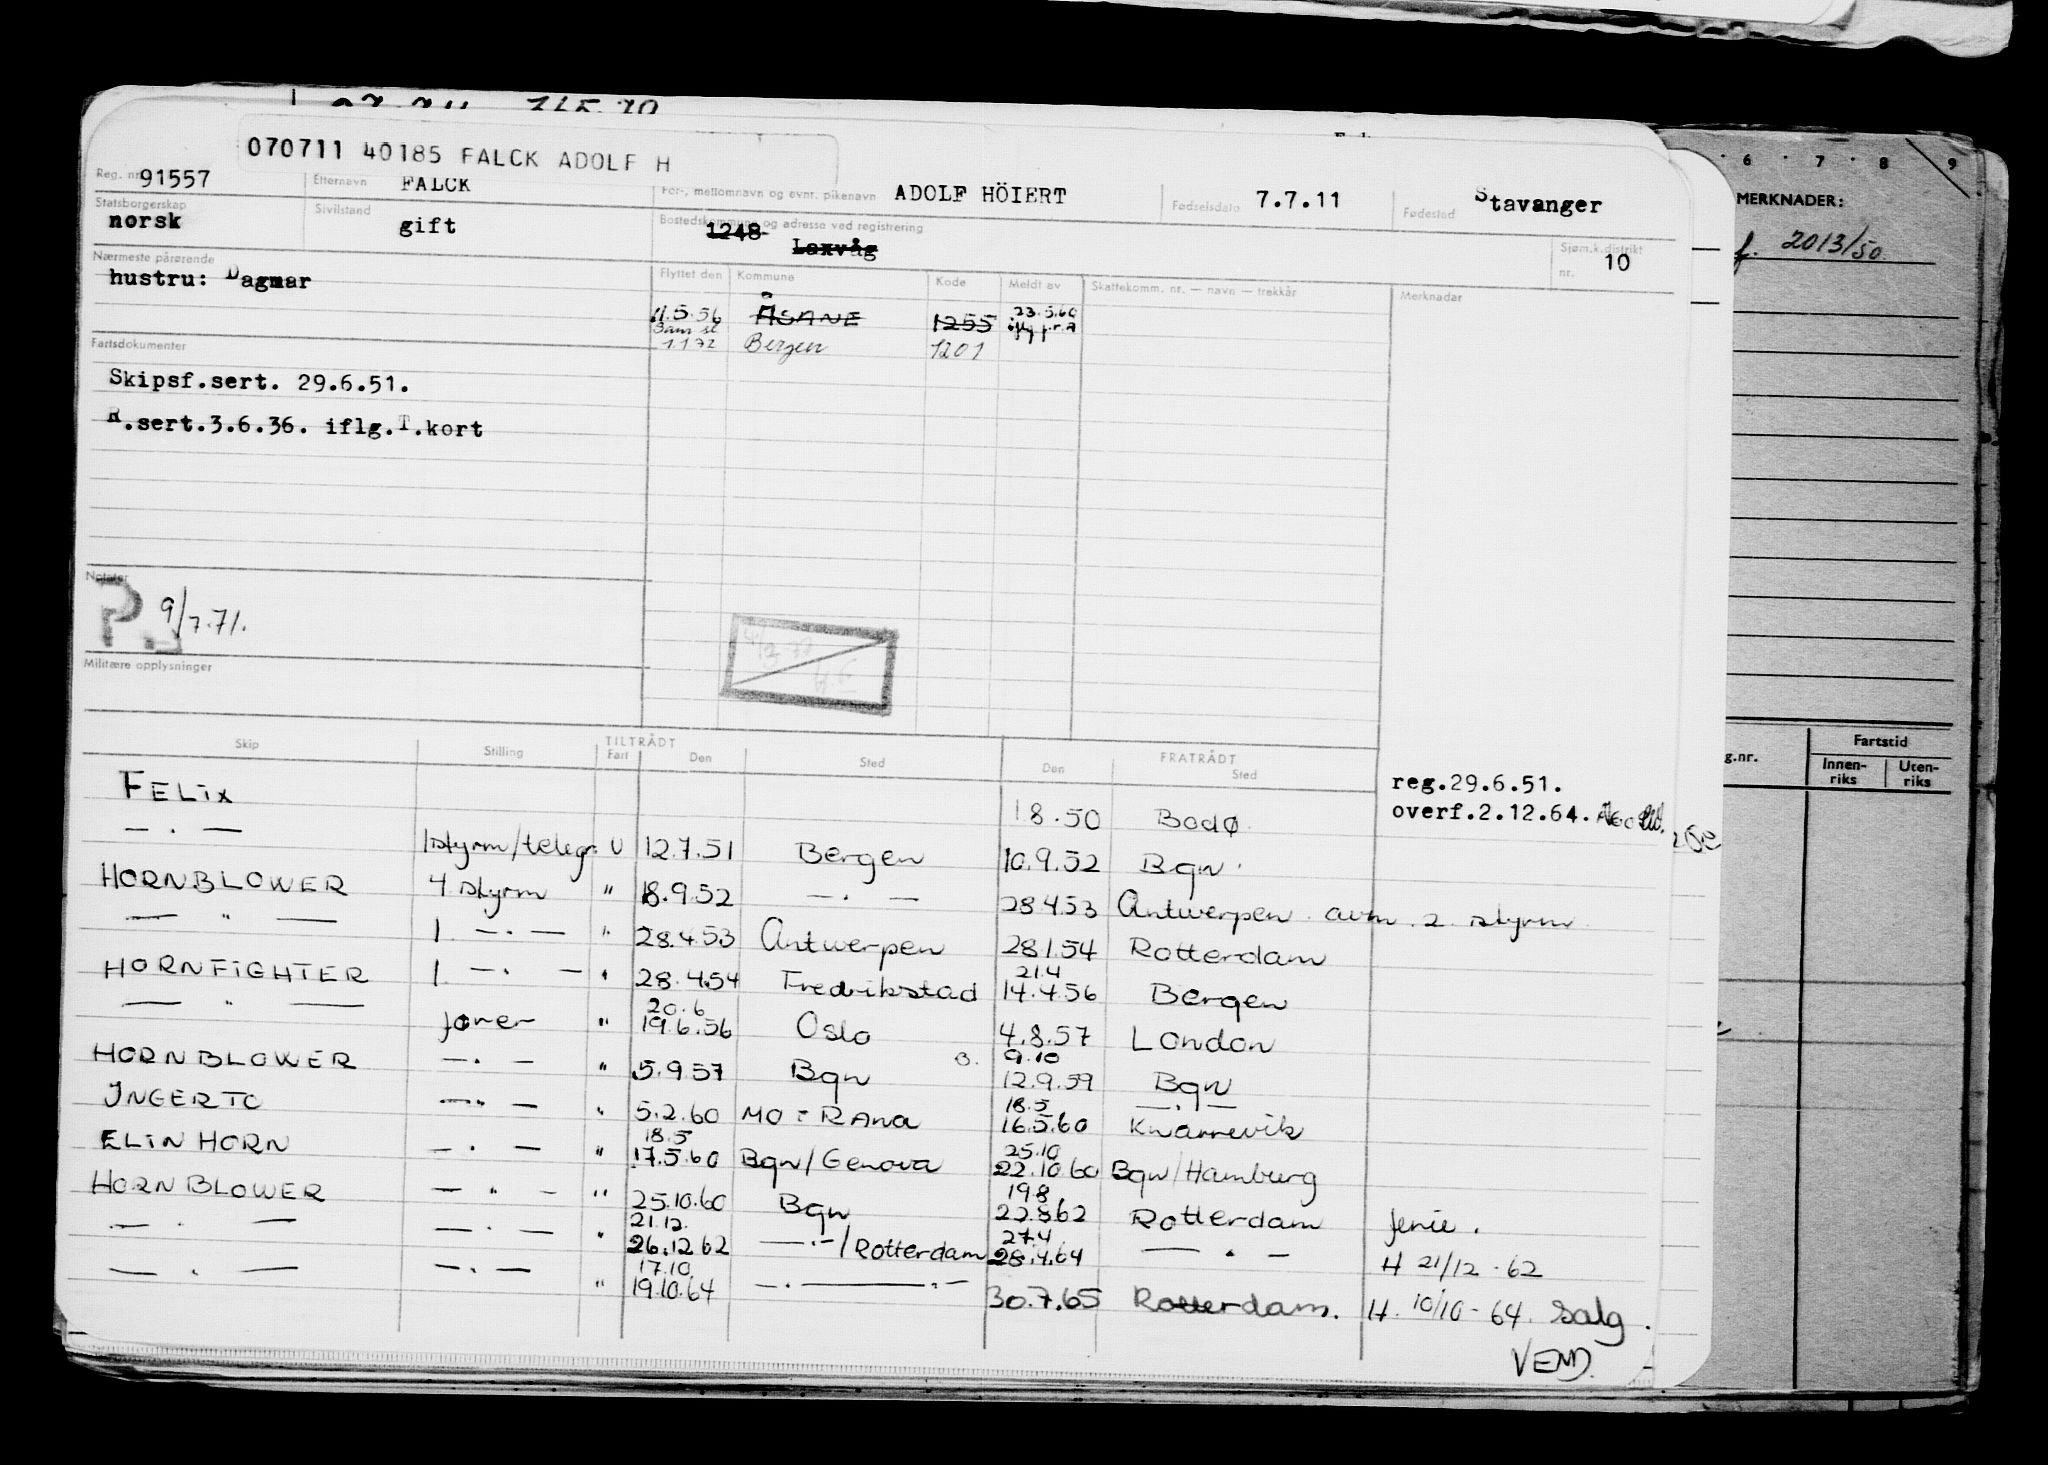 070711 40185 FALCK ADOLF H
Reg. nr. 91557 Etternavn FALCK For-, mellomnavn og evnt. pikenavn ADOLF HÖIERT Fødselsdato 7.7.11 Fødested Stavanger
Statsborgerskap norsk Sivilstand gift Bostedskommune og adresse ved registrering 1248 Laxvåg Sjøm.k.distrikt nr. 10
Nærmeste pårørende
hustru: Dagmar
Flyttet den Kommune Kode Meldt av Skattekomm. nr. — navn — trekkår Merknader
11.5.56 ÅSANE 1255 23.5.60
1.1.72 Bergen 1201
Fartsdokumenter
Skipsf.sert. 29.6.51.
R.sert.3.6.36. iflg.T.kort
Notater
P. 9/7.71.
Militære opplysninger
TILTRÅDT FRATRÅDT
Skip Stilling Fart Den Sted Den Sted
reg.29.6.51.
overf.2.12.64.
FELIX 18.50 Bodø
— . — 1styrm/telegr. U 12.7.51 Bergen 10.9.52 Bgn.
HORNBLOWER 4 styrm " 18.9.52 — . — 28.4.53 Antwerpen. avm. 2. styrm.
— " — 1. — . — " 28.4.53 Antwerpen 28.1.54 Rotterdam
HORNFIGHTER 1. — . — " 28.4.54 Fredrikstad 21.4 14.4.56 Bergen
— " — fører " 20.6 19.6.56 Oslo 4.8.57 London
HORNBLOWER — . — " 5.9.57 Bgn 9.10 12.9.59 Bgn
INGERTO — " — " 5.2.60 MO i RAna 18.5 16.5.60 Knarrevik
ELIN HORN — . — " 18.5 17.5.60 Bgn/Genova 25.10 22.10.60 Bgn/Hamburg
HORNBLOWER — " — " 25.10.60 Bgn 19.8 22.8.62 Rotterdam ferie.
— . — — . — " 21.12. 26.12.62 — . — /Rotterdam 27.4 28.4.64 — " — H 21/12.62
— . — — . — " 17.10 19.10.64 — . — . — 30.7.65 Rotterdam. H. 10/10-64. Salg.
VEND.
6 7 8 9
MERKNADER:
f. 2013/50
g.nr. Fartstid
Innen-riks Uten-riks